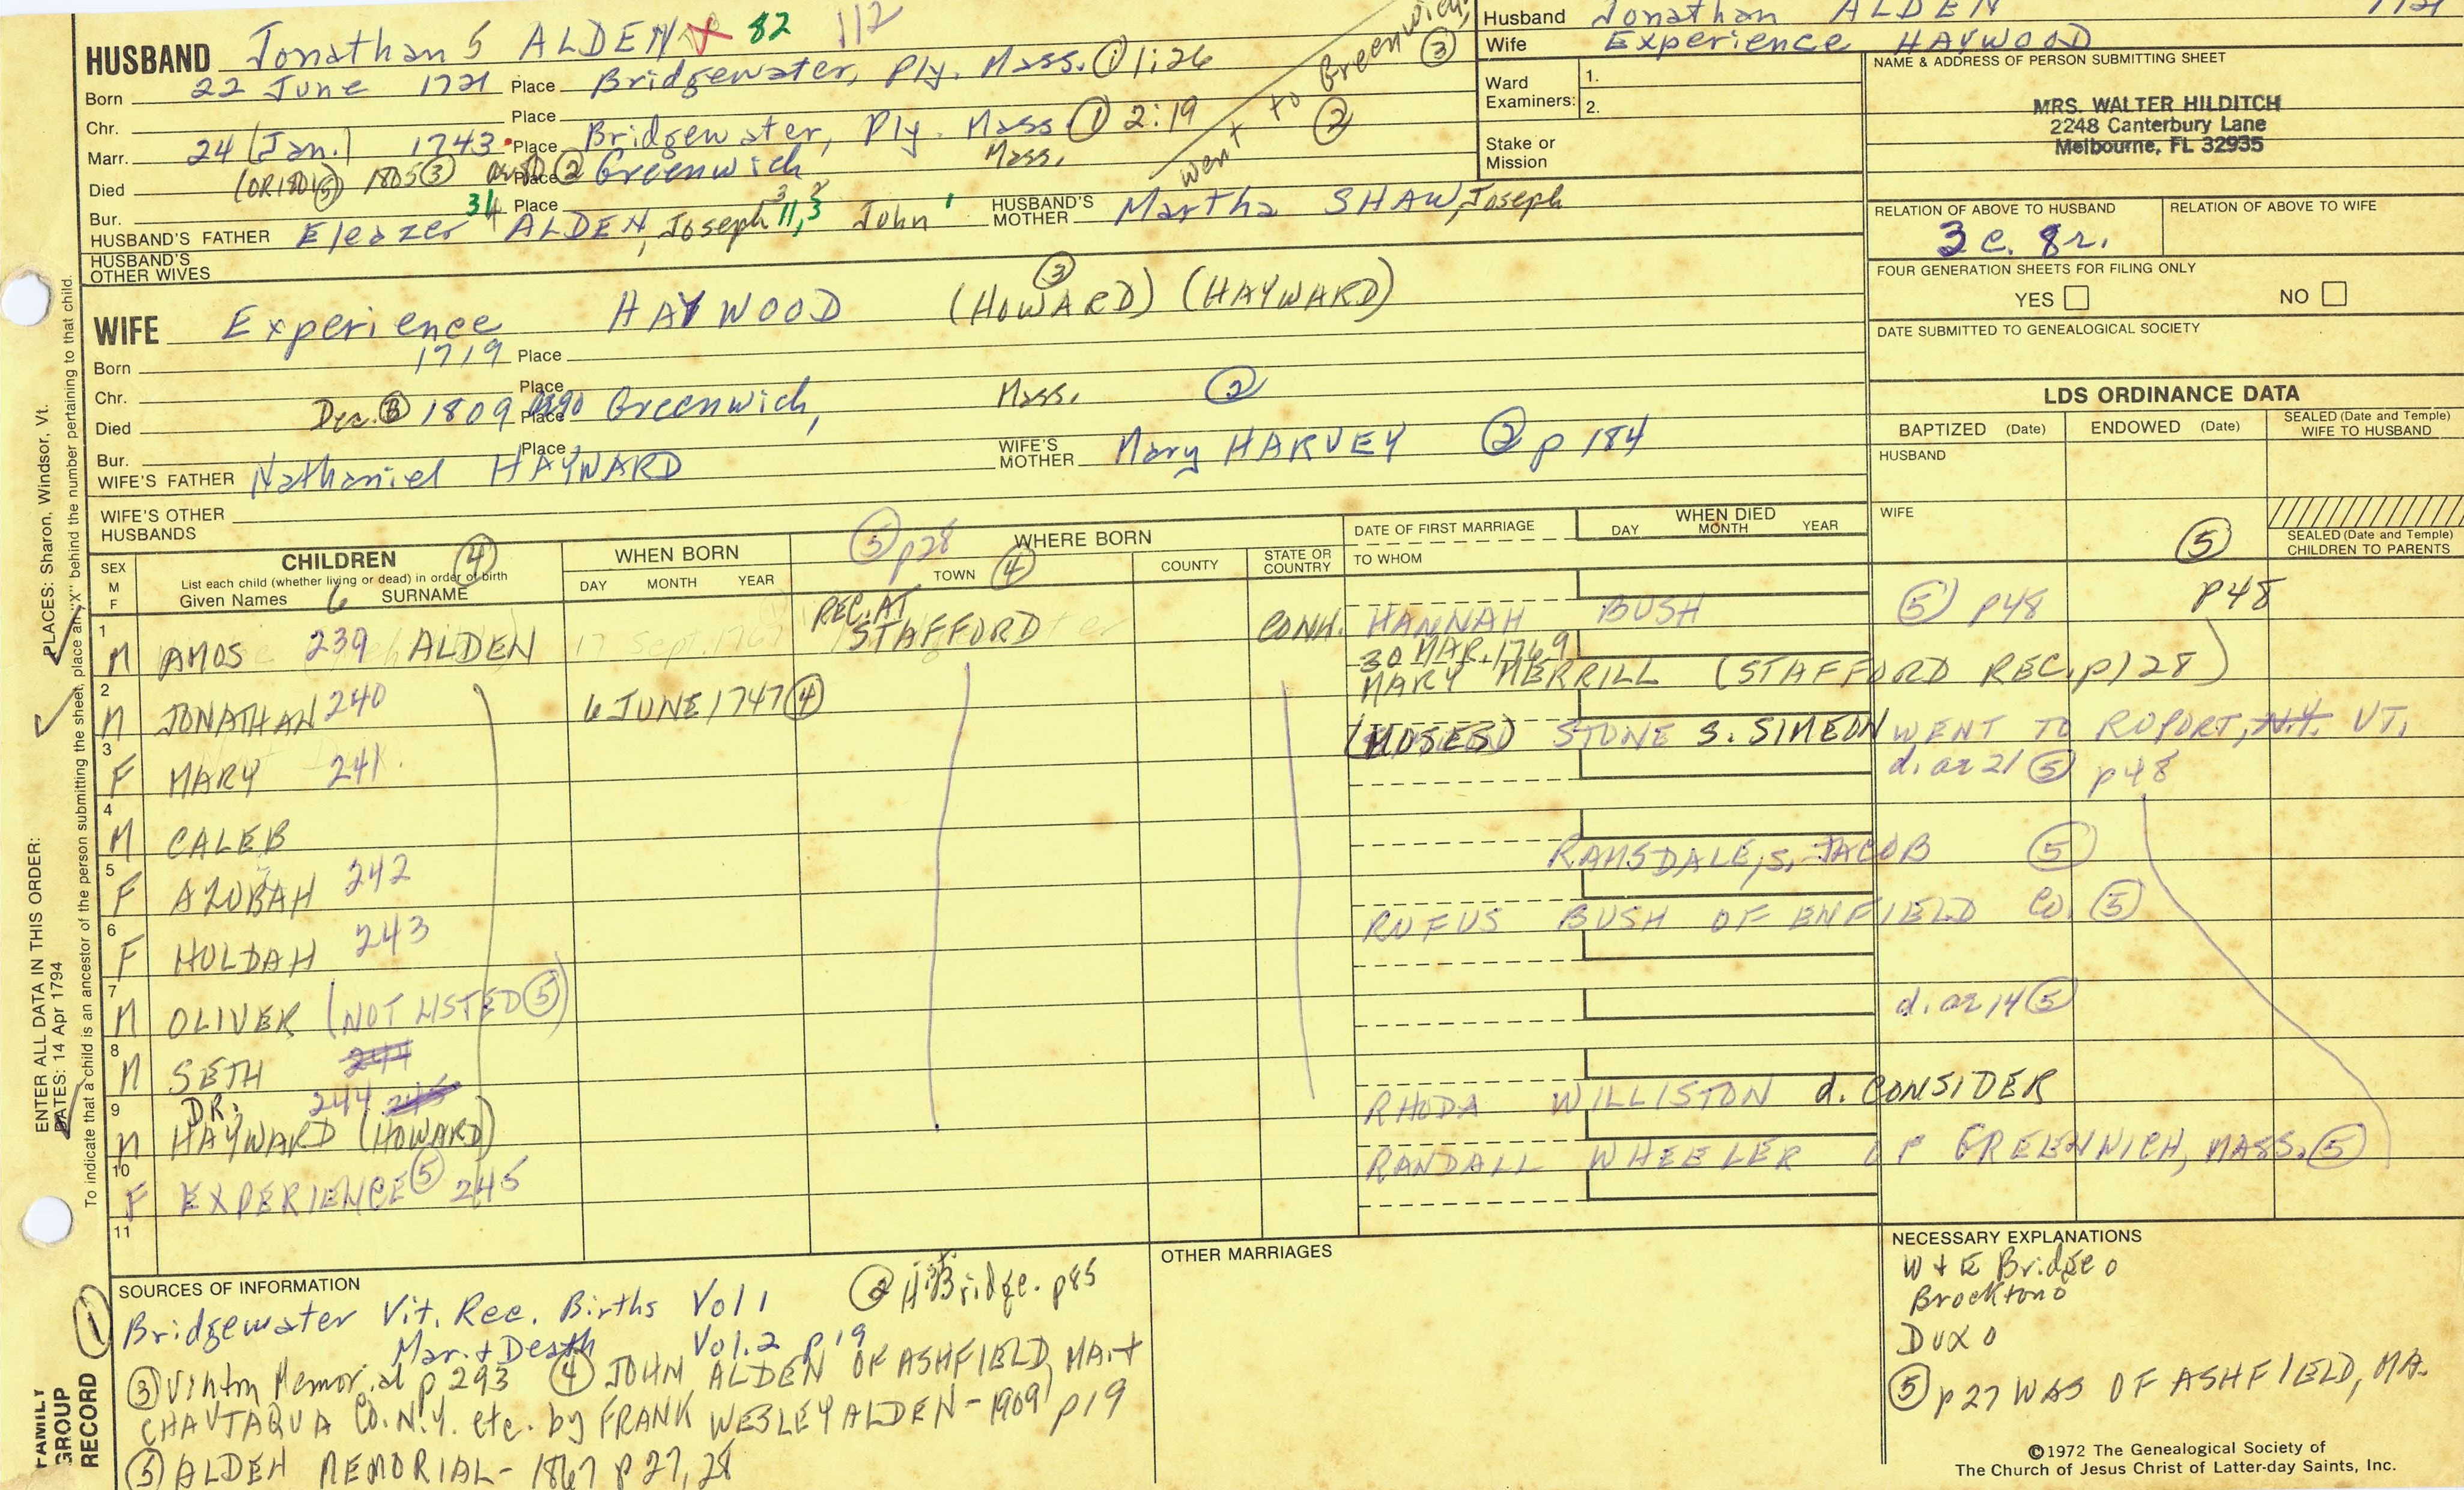 HUSBAND Jonathan 5 ALDEN X 82 112
Born 22 June 1721 Place Bridgewater, Ply. Mass. ① 1:26
Chr. Place
Marr. 24 (Jan.) 1743 Place Bridgewater, Ply. Mass ① 2:19
Died (OR 1801⑤) 1805③ ② Place Greenwich Mass.
went to Greenwich, ③ ②
Bur. Place
HUSBAND'S FATHER Eleazer 34 ALDEN, Joseph 3 11, 2 3 John 1 HUSBAND'S MOTHER Martha SHAW, Joseph
HUSBAND'S OTHER WIVES
Husband Jonathan ALDEN 1721
Wife Experience HAYWOOD
Ward Examiners: 1. 2.
Stake or Mission
NAME & ADDRESS OF PERSON SUBMITTING SHEET
MRS. WALTER HILDITCH
2248 Canterbury Lane
Melbourne, FL 32935
RELATION OF ABOVE TO HUSBAND RELATION OF ABOVE TO WIFE
3 c. 8 r.
FOUR GENERATION SHEETS FOR FILING ONLY
YES NO
DATE SUBMITTED TO GENEALOGICAL SOCIETY
WIFE Experience HAYWOOD (HOWARD) ③ (HAYWARD)
Born 1719 Place
Chr. Place
Died Dec. ③ 1809 Place Greenwich, Mass. ②
Bur. Place
WIFE'S FATHER Nathaniel HAYWARD WIFE'S MOTHER Mary HARVEY ② p 184
WIFE'S OTHER HUSBANDS
LDS ORDINANCE DATA
BAPTIZED (Date) ENDOWED (Date) SEALED (Date and Temple) WIFE TO HUSBAND
HUSBAND
WIFE
⑤ SEALED (Date and Temple) CHILDREN TO PARENTS
SEX M F CHILDREN ④ List each child (whether living or dead) in order of birth Given Names 6 SURNAME
WHEN BORN DAY MONTH YEAR
⑤ p28 WHERE BORN TOWN ④ COUNTY STATE OR COUNTRY
DATE OF FIRST MARRIAGE TO WHOM
WHEN DIED DAY MONTH YEAR
1 M AMOS 239 ALDEN REC. AT STAFFORD CONN. HANNAH BUSH ⑤ p48 p48
2 M JONATHAN 240 6 JUNE 1747 ④ 30 MAR. 1769 MARY MERRILL (STAFFORD REC. p 128)
3 F MARY 241 (MOSES) STONE S. SIMEON WENT TO RUPORT, N.Y. VT.
4 M CALEB d. ae 21 ⑤ p48
5 F AZUBAH 242 RAMSDALE, S. JACOB ⑤
6 F HULDAH 243 RUFUS BUSH OF ENFIELD CO. ⑤
7 M OLIVER (NOT LISTED ⑤)
8 M SETH 244 d. ae 14 ⑤
9 M DR. HAYWARD (HOWARD) 244 245 RHODA WILLISTON d. CONSIDER
10 F EXPERIENCE ⑤ 245 RANDALL WHEELER OF GREENWICH, MASS. ⑤
11
SOURCES OF INFORMATION
① Bridgewater Vit. Rec. Births Vol 1
Mar. + Death Vol. 2 p 19
② Hist. Bridge. p85
③ Vinton Memorial p 293 ④ JOHN ALDEN OF ASHFIELD, MA. +
CHAUTAQUA CO. N.Y. etc. by FRANK WESLEY ALDEN - 1909 p19
⑤ ALDEN MEMORIAL - 1867 p 27, 28
OTHER MARRIAGES
NECESSARY EXPLANATIONS
W + E Bridge o
Brockton o
Dux o
⑤ p 27 WAS OF ASHFIELD, MA.
©1972 The Genealogical Society of
The Church of Jesus Christ of Latter-day Saints, Inc.
FAMILY GROUP RECORD
ENTER ALL DATA IN THIS ORDER:
DATES: 14 Apr 1794
PLACES: Sharon, Windsor, Vt.
To indicate that a child is an ancestor of the person submitting the sheet, place an "X" behind the number pertaining to that child.